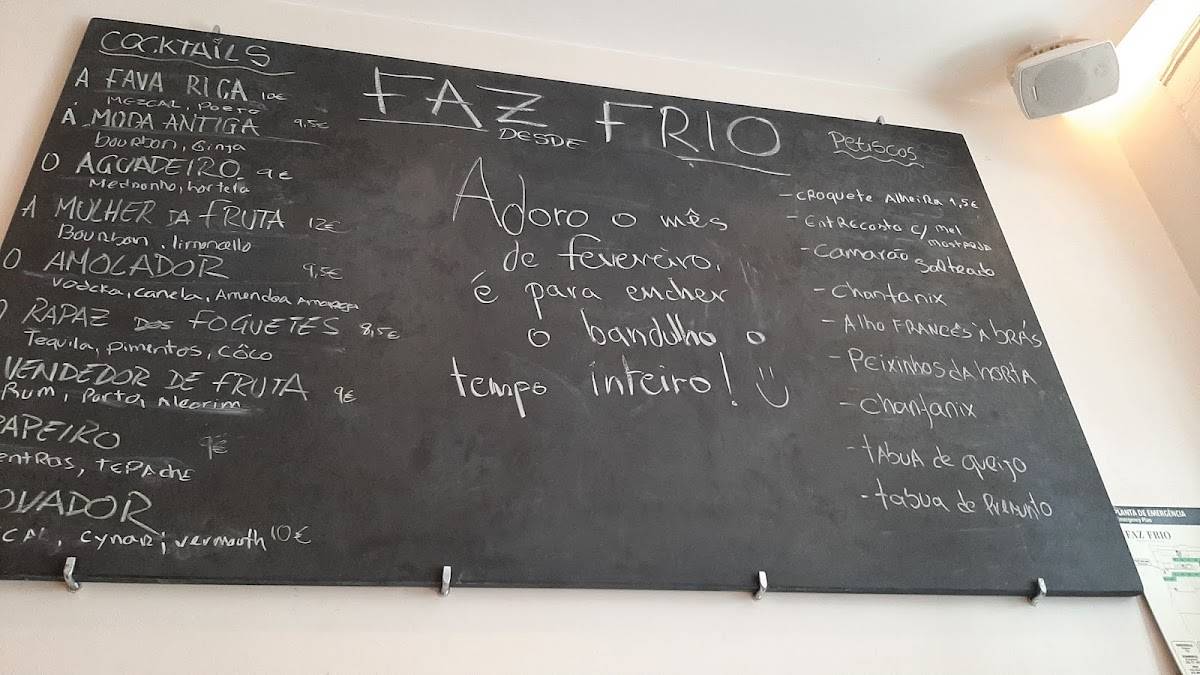 COCKTAILS
A FAVA RICA 10€
MEZCAL, Poejo
À MODA ANTIGA 9,5€
bourbon, Ginja
O AGUADEIRO 9€
Medronho, hortelã
A MULHER DA FRUTA 12€
Bourbon, limoncello
O AMOLADOR 9,5€
vodcka, canela, Amendoa Amarga
O RAPAZ DOS FOGUETES 8,5€
Tequila, pimentos, côco
VENDEDOR DE FRUTA 9€
Rum, Porto, Alecrim
PAPEIRO 9€
ENTROS, TEPACHE
OVADOR
CAL, cynar, vermouth 10€
FAZ FRIO
DESDE
Adoro o mês
de fevereiro,
é para encher
o bandulho o
tempo inteiro!
Petiscos
- CROQUETE Alheira 1,5€
- EntRECosto c/ mel
mostarda
- Camarão Salteado
- Chanfanix
- Alho FRANCÊS À BRÁS
- Peixinhos da HORTA
- Chanfanix
- TÁBUA de queijo
- tabua de Presunto
PLANTA DE EMERGÊNCIA
Emergency Plan
FAZ FRIO